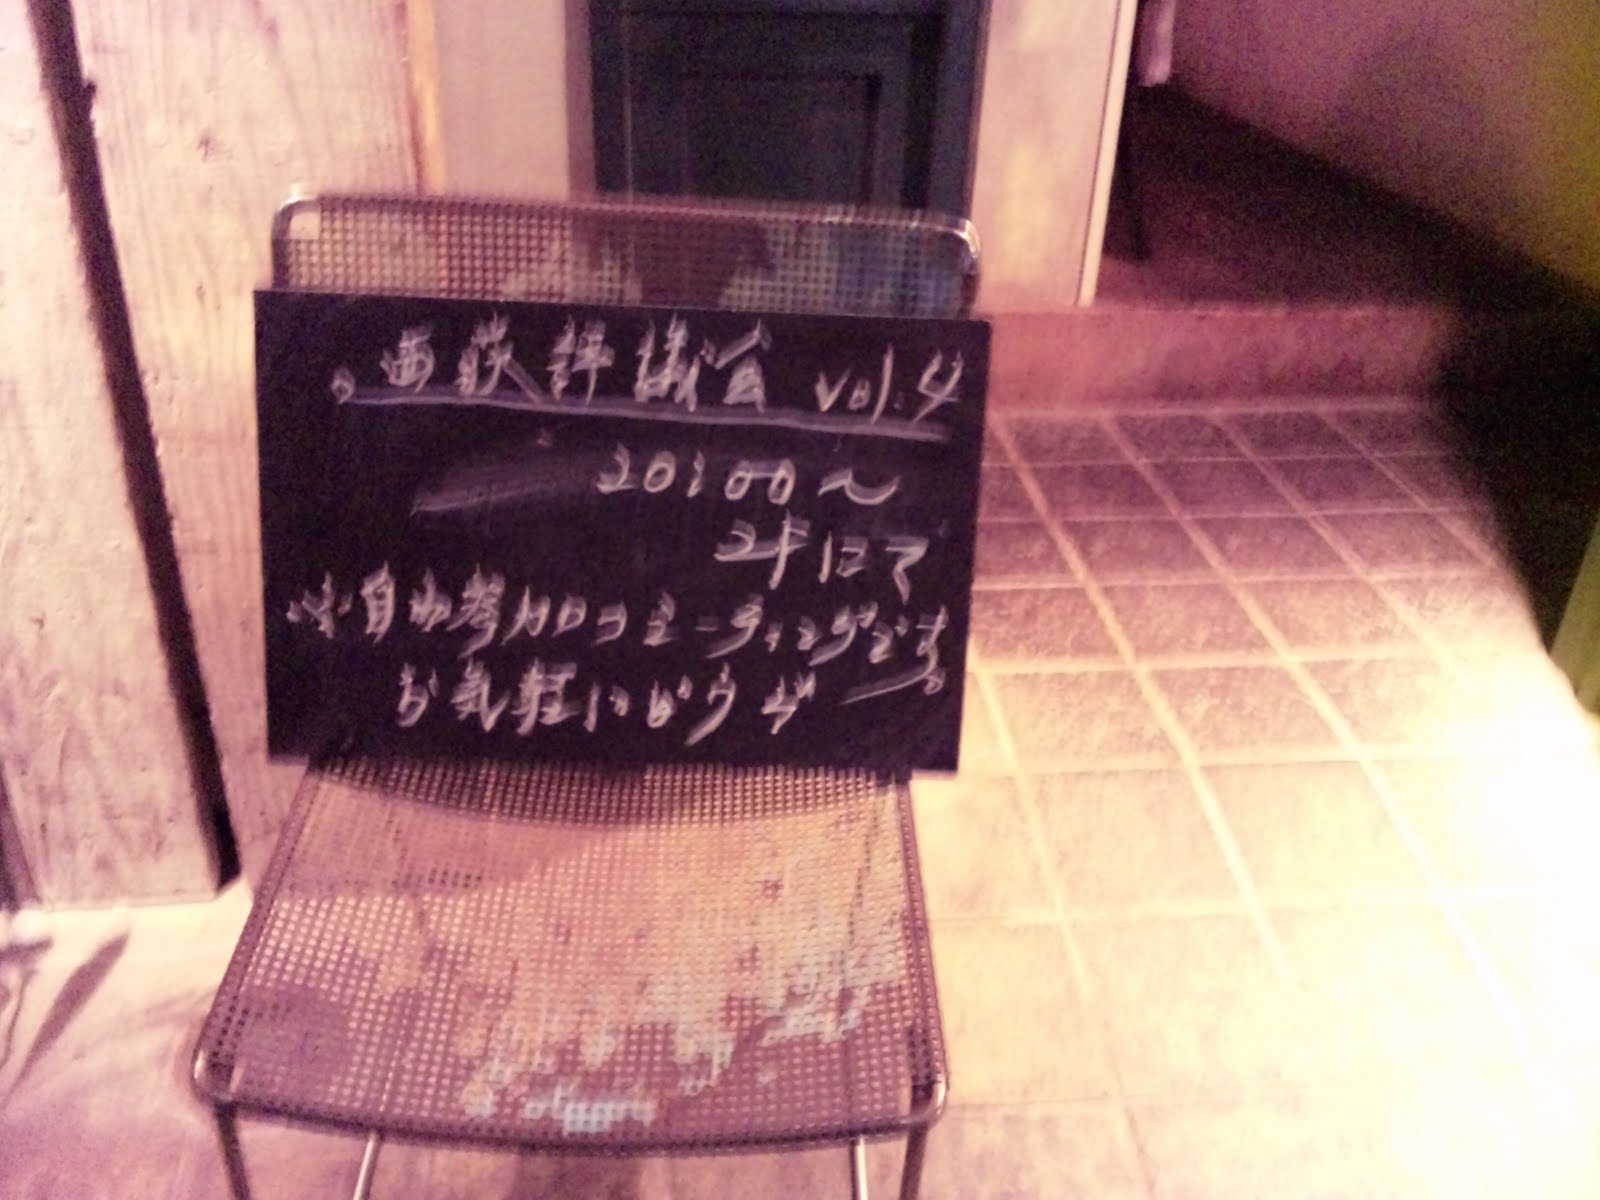 。西荻評議会 vol.4
20:00〜
2Fにて
※自由参加のミーティングです。
お気軽にどうぞ